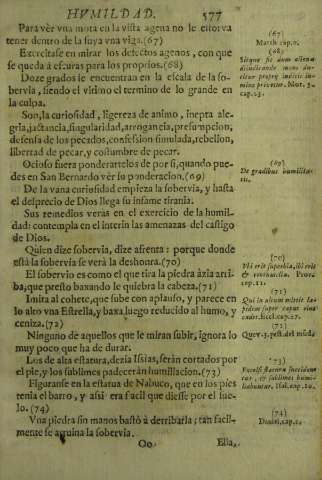 HVMILDAD. 577
Para ver vna mota en la vista agena no le estorva
tener dentro de la suya vna viga.(67)
Exercitase en mirar los defectos agenos, con que
se queda á escuras para los proprios.(68)
Doze grados se encuentran en la escala de la so-
bervia, siendo el vltimo el termino de lo grande en
la culpa.
Son, la curiosidad, ligereza de animo, inepta ale-
gria, jactancia, singularidad, arrogancia, presumpcion,
defensa de los pecados, confession simulada, rebelion,
libertad de pecar, y costumbre de pecar.
Ocioso fuera ponderartelos de por si, quando pue-
des en San Bernardo vèr su ponderacion.(69)
De la vana curiosidad empieza la sobervia, y hasta
el desprecio de Dios llega su infame tirania.
Sus remedios veràs en el exercicio de la humil-
dad: contempla en el interin las amenazas del castigo
de Dios.
Quien dize sobervia, dize afrenta: porque donde
està la sobervia se verà la deshonra.(70)
El sobervio es como el que tira la piedra àzia arri-
ba, que presto baxando le quiebra la cabeza.(71)
Imita al cohete, que sube con aplauso, y parece en
lo alto vna Estrella, y baxa luego reducido al humo, y
ceniza.(72)
Ninguno de aquellos que le miran subir, ignora lo
muy poco que ha de durar.
Los de alta estatura, dezia Isaias, seràn cortados por
el pie, y los sublimes padeceràn humillacion.(73)
Figuranse en la estatua de Nabuco, que en los pies
tenia el barro, y assi era facil que diesse por el sue-
lo.(74)
Vna piedra sin manos bastò à derribarla; tan facil-
mente se arruina la sobervia.
Oo Ella,
(67)
Matth. cap.7.
(68)
(69)
De gradibus humilita-
tis.
(70)
Vbi erit superbia, ibi erit
& contumelia. Prov.
cap.11.
(71)
Qui in altum mittit la-
pidem super caput eius
cadet. Eccl. cap.27.
(72)
(73)
Excelsi statura succiden-
tur, & sublimes humi-
liabuntur. Isai. cap.10.
(74)
Daniel, cap.2.